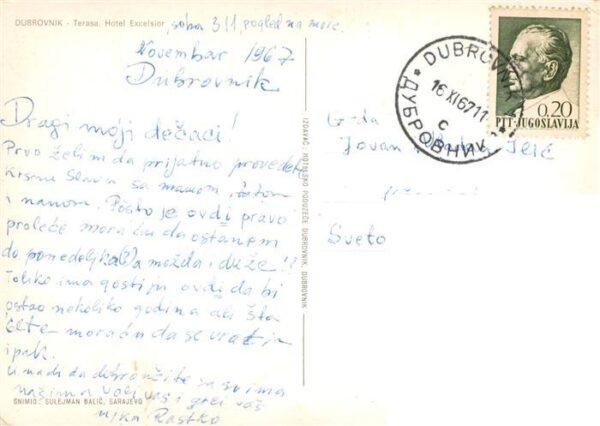 DUBROVNIK - Terasa Hotel Excelsior
soba 311, pogled na more.
Novembar 1967
Dubrovnik
Dragi moji dečaci!
Prvo želim da prijatno provedete
Krsnu Slavu sa mamom, tatom
i nanom. Pošto je ovdi pravo
proleće moraću da ostanem
do ponedeljka(?) a možda i duže!!
Toliko ima gostiju ovdi da bi
ostao nekoliko godina ali šta
ćete moraću da se vratim
ipak.
U nadi da dobro učite sa svima
vas i grli vas
ujka Rastko
SNIMIO: SULEJMAN BALIĆ, SARAJEVO
IZDAVAČ: HOTELSKO PODUZEĆE DUBROVNIK, DUBROVNIK
DUBROVNIK
16 XI 67 11
C
ДУБРОВНИК
0.20
PTT-JUGOSLAVIJA
G-da
Jovan Ilić
Sveto